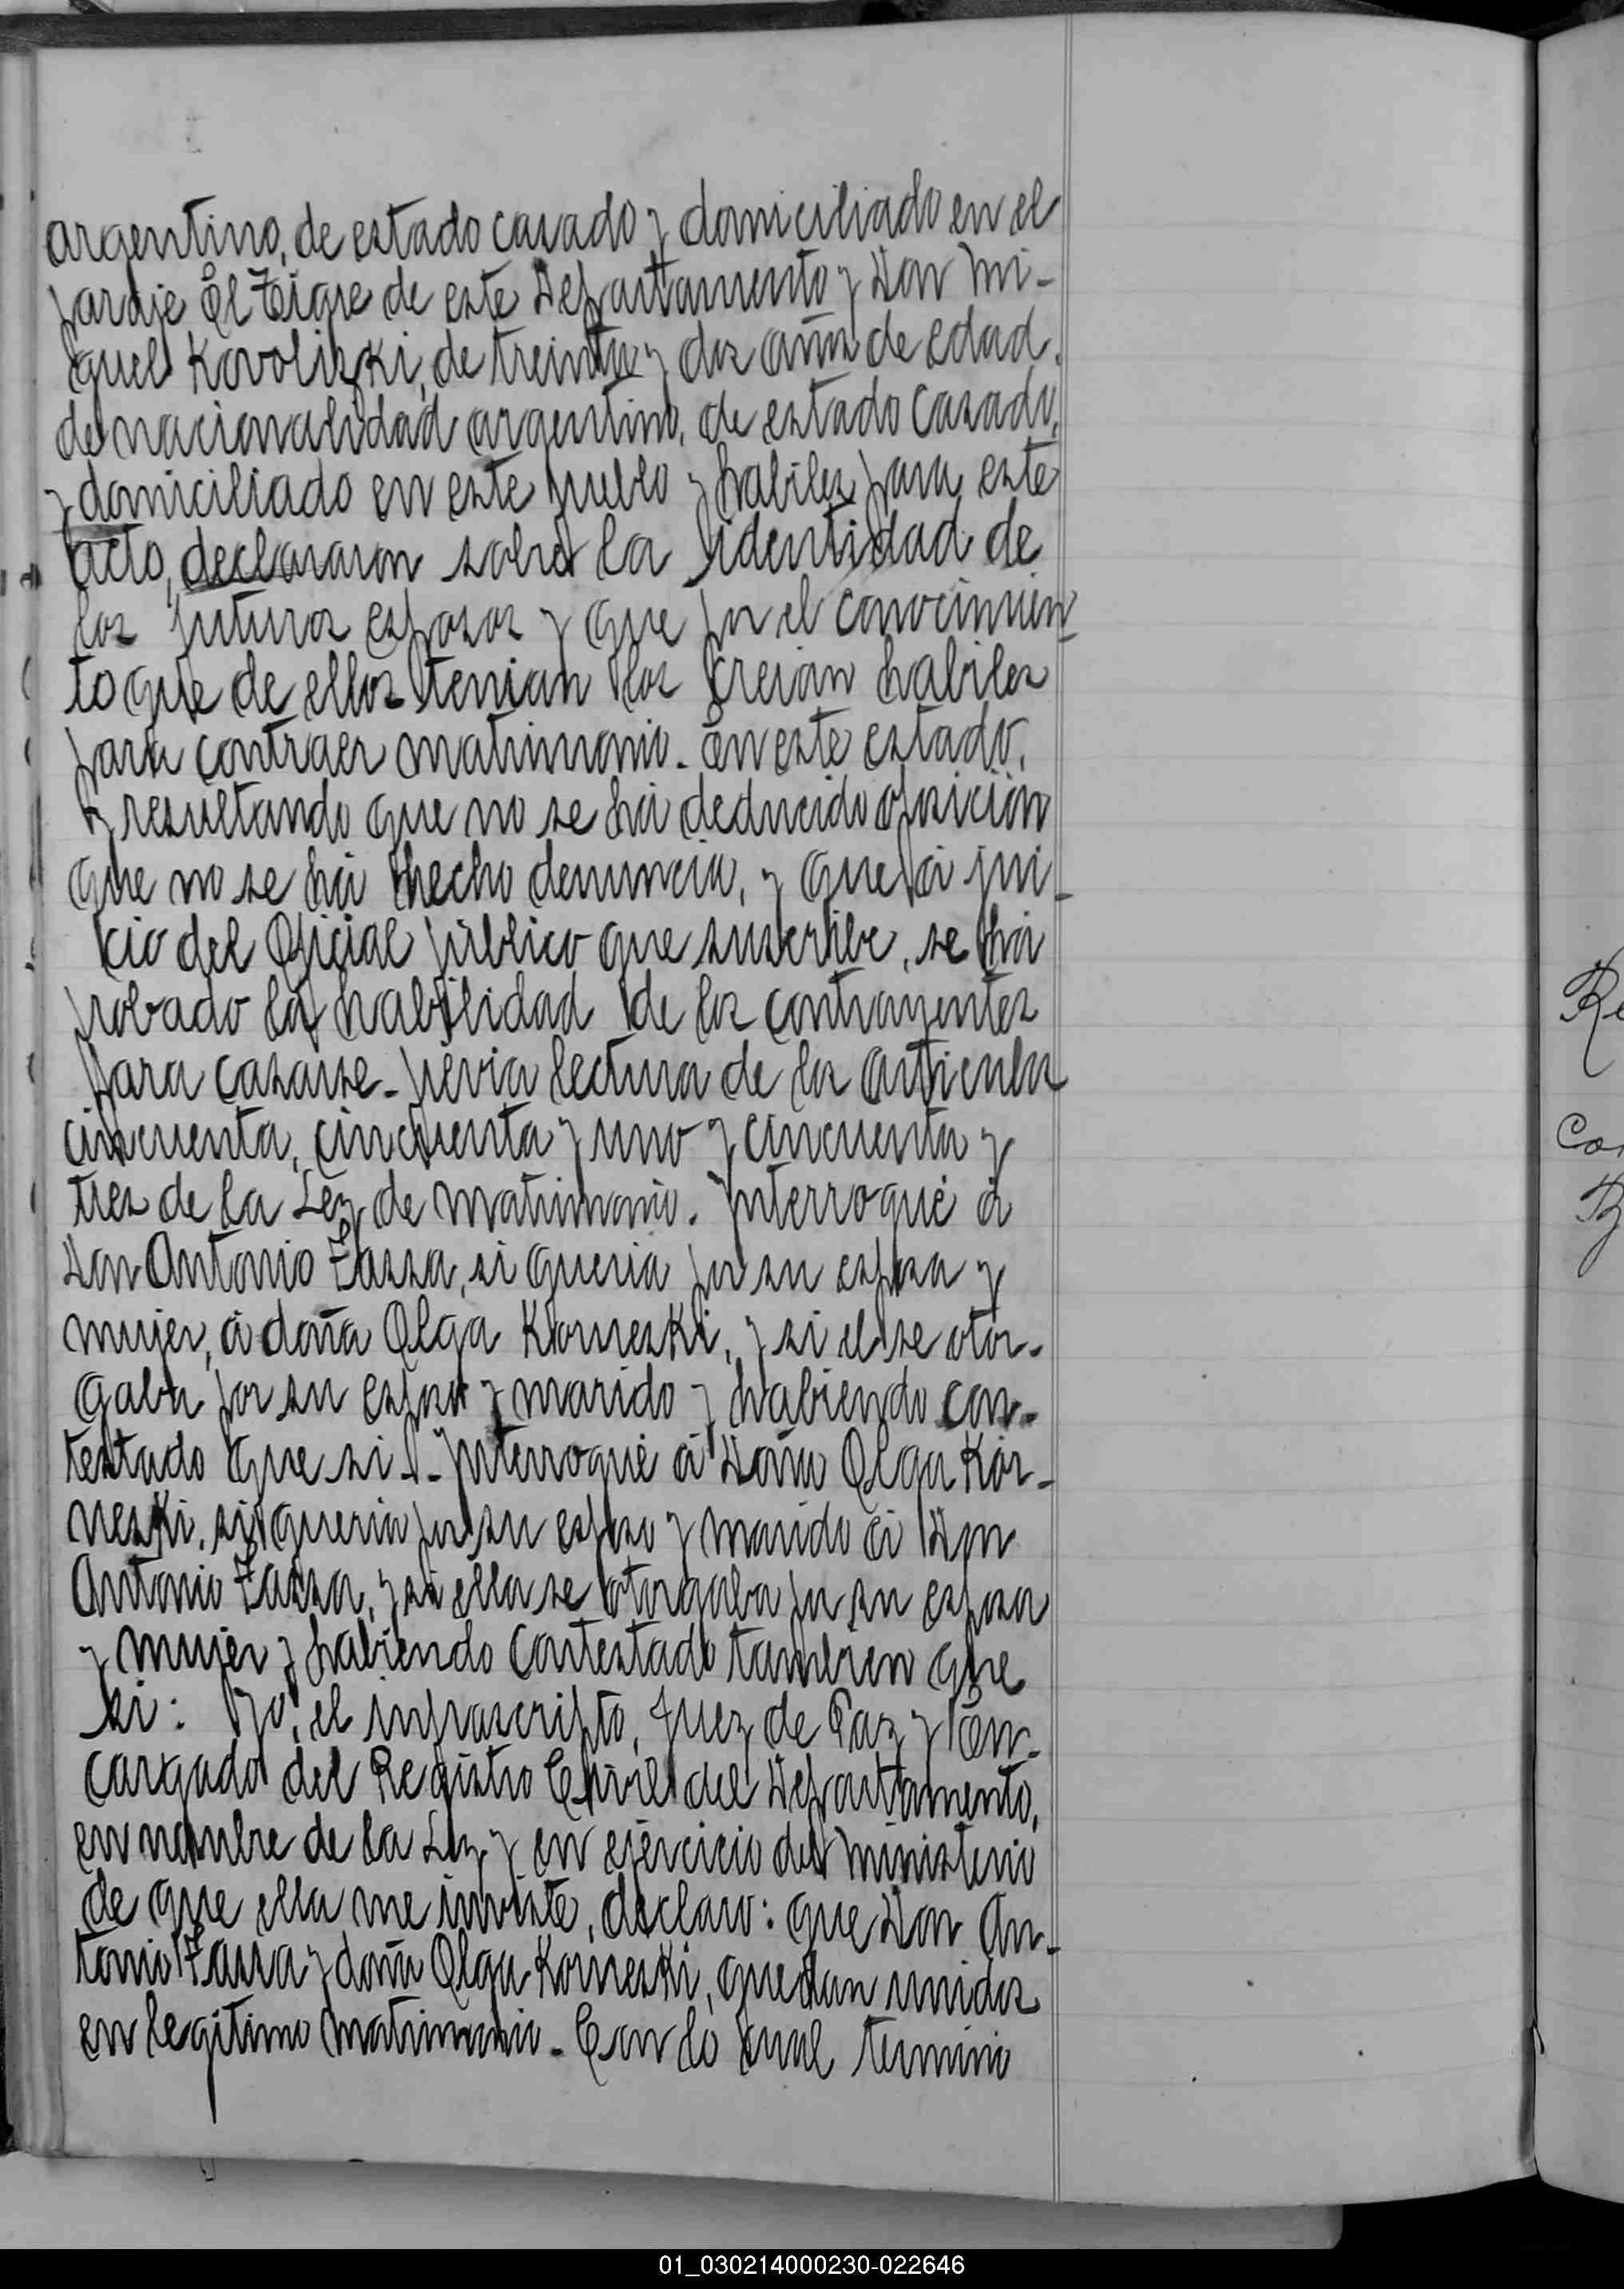 argentino, de estado casado y domiciliado en el
paraje El Tigre de este Departamento y Don Mi-
guel Kovoliski, de treinta y dos años de edad.
de nacionalidad argentino, de estado casado,
y domiciliado en este pueblo y habiles para este
acto, declararon sobre la identidad de
los futuros esposos y que por el conocimien-
to que de ellos tenian los creian habiles
para contraer matrimonio. En este estado,
y resultando que no se há deducido oposición
que no se há hecho denuncia, y que á jui-
cio del Oficial público que suscribe, se há
probado la habilidad de los contrayentes
para casarse - previa lectura de los articulos
cincuenta, cincuenta y uno y cincuenta y
tres de la Ley de Matrimonio. Interrogué á
Don Antonio Zassa, si queria por su esposa y
mujer, á doña Olga Korneski, y si el se otor-
gaba por su esposo y marido y habiendo con-
testado que si - Interrogué á Doña Olga Kor-
neski, si queria por su esposo y marido á Don
Antonio Zassa, y si ella se otorgaba por su esposa
y mujer y habiendo contestado tambien que
si: Yo, el infrascripto, Juez de Paz y En-
cargado del Registro Civil del Departamento,
en nombre de la Ley y en ejercicio del ministerio
de que ella me inviste, declaro: que Don An-
tonio Zassa y doña Olga Korneski, quedan unidos
en legitimo matrimonio. Con lo cual terminó
Co
01_030214000230-022646